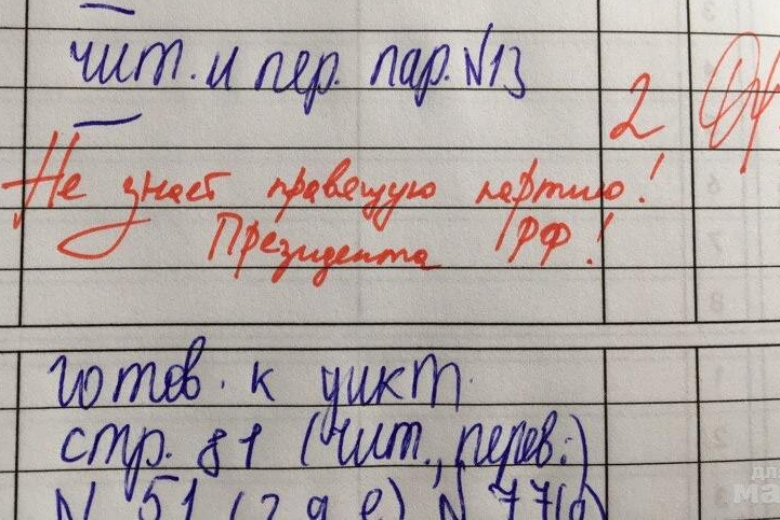 чит. и пер. пар. N13
2
Не знает правящую партию!
Президента РФ!
готов. к дикт.
стр. 81 (чит., перев.)
N 51 (г д е) N 77(а)